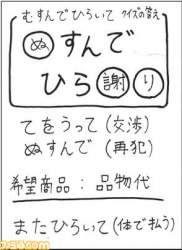 むすんでひらいて クイズの答え
ぬすんで
ひら謝り
てをうって(交渉)
ぬすんで(再犯)
希望商品：品物代
またひらいて(体で払う)